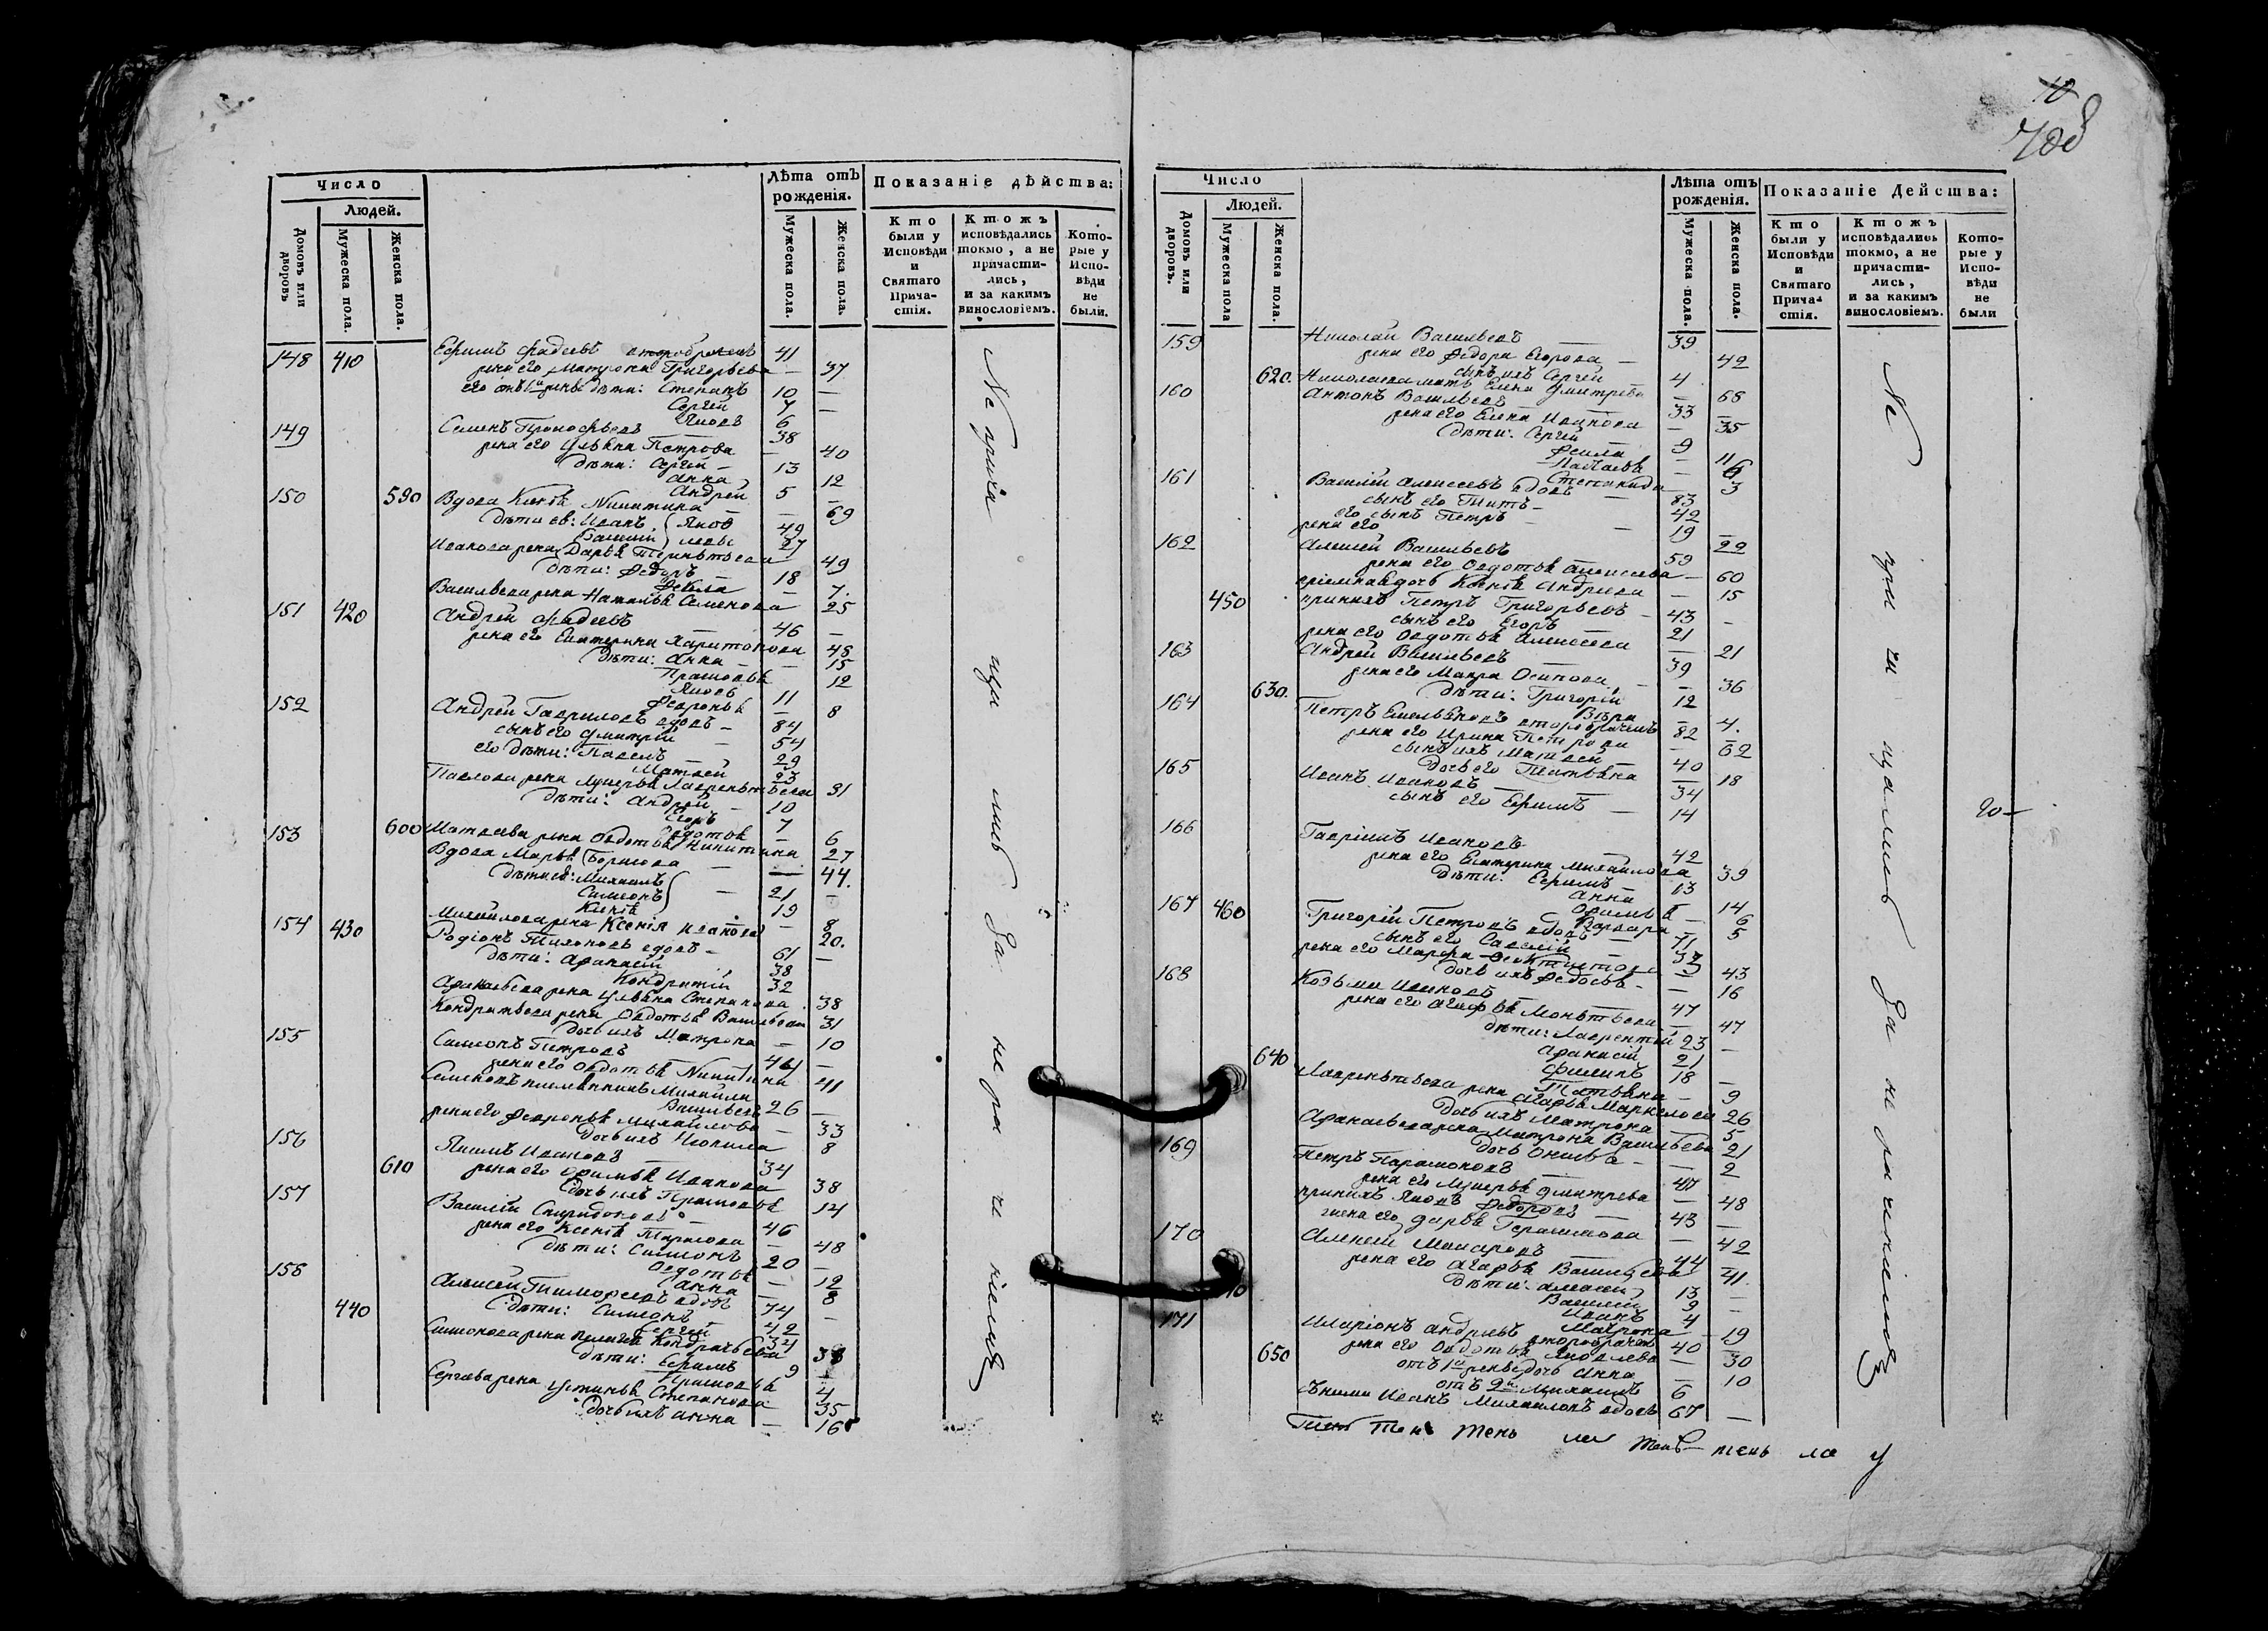 10
708
Число
Людей.
Домовъ или дворовъ
Мужеска пола.
Женска пола.
Лѣта отъ рожденія.
Мужеска пола.
Женска пола.
Показаніе дѣйства:
Кто были у Исповѣди и Святаго Прича-стія.
Ктожъ исповѣдались токмо, а не причасти-лись, и за какимъ винословіемъ.
Кото-рые у Испо-вѣди не были.
148 410 Ефимъ Фадеевъ второбраченъ 41
жена его Матрона Григорьева — 37
его отъ 1й жены дѣти: Степанъ 10 —
Сергей 7 —
Яковъ 6
149 Семенъ Прокофьевъ 38
жена его Ульяна Петрова — 40
дѣти: Сергей 13
Анна 12
Андрей 5 —
150 590 Вдова Никитина — 69
дѣти ея: Иванъ 49
Василій 27
Иванова жена Дарья 49
дѣти: Федоръ 18
Фекла — 7.
Васильева жена Наталья Семенова 25
151 420 Андрей Фадеевъ 46 —
жена его Екатерина Харитонова 48
дѣти: Анна — 15
Прасковья 12
Яковъ 11
Февронья — 8
152 Андрей Гавриловъ вдовъ — 84
сынъ его Дмитрій 54
его дѣти: Павелъ 29
Матвей 23
Павлова жена Лукерья Лаврентьева 31
дѣти: Андрей 10
Егоръ 7
Авдотья — 6
600 Матвеева жена Овдотья Никитина 27
153 Вдова Марья Борисова — 44.
дѣти ея: Михаилъ 21 —
Симеонъ 19
— 8
Михайлова жена Ксенія Иванова 20.
154 430 Родіонъ Тихоновъ вдовъ — 61 —
дѣти: Афанасій 38
Кондратій 32
Афанасьева жена Ульяна Степанова 38
Кондратьева жена Овдотья Васильева 31
дочь ихъ Матрона — 10
155 Симеонъ Петровъ 44 —
жена его Овдотья Никитина 41
Семеновъ племянникъ Михайла
Васильевъ 26 —
жена его Февронья Михайлова — 33
дочь ихъ 8
156 Якимъ Ивановъ 34
610 жена его Офимья Иванова 38
дочь ихъ Прасковья 14
157 Василій Спиридоновъ 46
жена его Ксенія Тарасова — 48
дѣти: Симеонъ 20 —
Овдотья — 12
Анна — 8
158 Алексей Тимофеевъ вдовъ 74 —
440 дѣти: Симеонъ 42
Сергей 34
Симонова жена Пелагея Кондратьева 38
дѣти: Ефимъ 9 —
Прасковья 4
Сергеева жена Устинья Степанова 35
дочь ихъ Анна — 16
Не прича щи лись За не ра че ніемъ
Число
Людей.
Домовъ или дворовъ.
Мужеска пола
Женска пола.
Лѣта отъ рожденія.
Мужеска пола.
Женска пола.
Показаніе Действа:
Кто были у Исповѣди и Святаго Прича-стія.
Ктожъ исповѣдались токмо, а не причасти-лись, и за какимъ винословіемъ.
Кото-рые у Испо-вѣди не были
159 Николай Васильевъ 39
жена его Федора Егорова — 42
сынъ ихъ Сергей 4
620. Николаева мать Елена Дмитрева — 68
160 Антонъ Васильевъ 33 —
жена его Елена Иванова — 35
дѣти: Сергей 9
Фекла — 11
6
Степанида 3
161 Василій Алексеевъ вдовъ 83
сынъ его Титъ 42
его сынъ Петръ 19
жена его — 22
162 Алексей Васильевъ 59
жена его Овдотья Алексеева — 60
дочь Андреева — 15
450 Петръ Григорьевъ 43 —
сынъ его Егоръ 21
жена его Овдотья Алексеева — 21
163 Андрей Васильевъ 39
жена его Мавра Осипова — 36
630. дѣти: Григорій 12
Вера — 4.
164 Петръ Емельяновъ второбраченъ 82
жена его Ирина Петрова — 62
сынъ ихъ Матвей 40
дочь его Татьяна — 18
165 Иванъ Ивановъ 34
сынъ его Ефимъ 14
20—
166 Гавріилъ Ивановъ 42
жена его Екатерина Михайлова 39
дѣти: Ефимъ 13
Анна 14
Офимья — 6
Варвара 5
167 460 Григорій Петровъ вдовъ 71
сынъ его Савелій 37
жена его Марфа Феоктистова — 43
дочь ихъ Федосья — 16
168 Козьма Ивановъ 47
жена его — 47
дѣти: Лаврентій 23 —
Афанасій 21
640 Филипъ 18 —
Татьяна — 9
Лаврентьева жена Марья Маркелова 26
дочь ихъ Матрона — 5
Афанасьева жена Матрона Васильева 21
дочь — 2
169 Петръ Парамоновъ 47
жена его Лукерья Дмитрева — 48
Яковъ Федоровъ 43 —
жена его Дарья Герасимова — 42
170 Алексей Макаровъ 44 —
жена его Агафья Васильева 41
дѣти: Алексей 13 —
Василій 9 —
Иванъ 4
Матрона — 19
171 Иларіонъ Андреевъ второбраченъ 40 —
650 жена его Овдотья Яковлева — 30
отъ 1й жены дочь Анна — 10
отъ 2й Михаилъ 6
съ ними Иванъ Михайловъ вдовъ 67 —
Не при чи щались За не ра чен іемъ
тень тень ла у